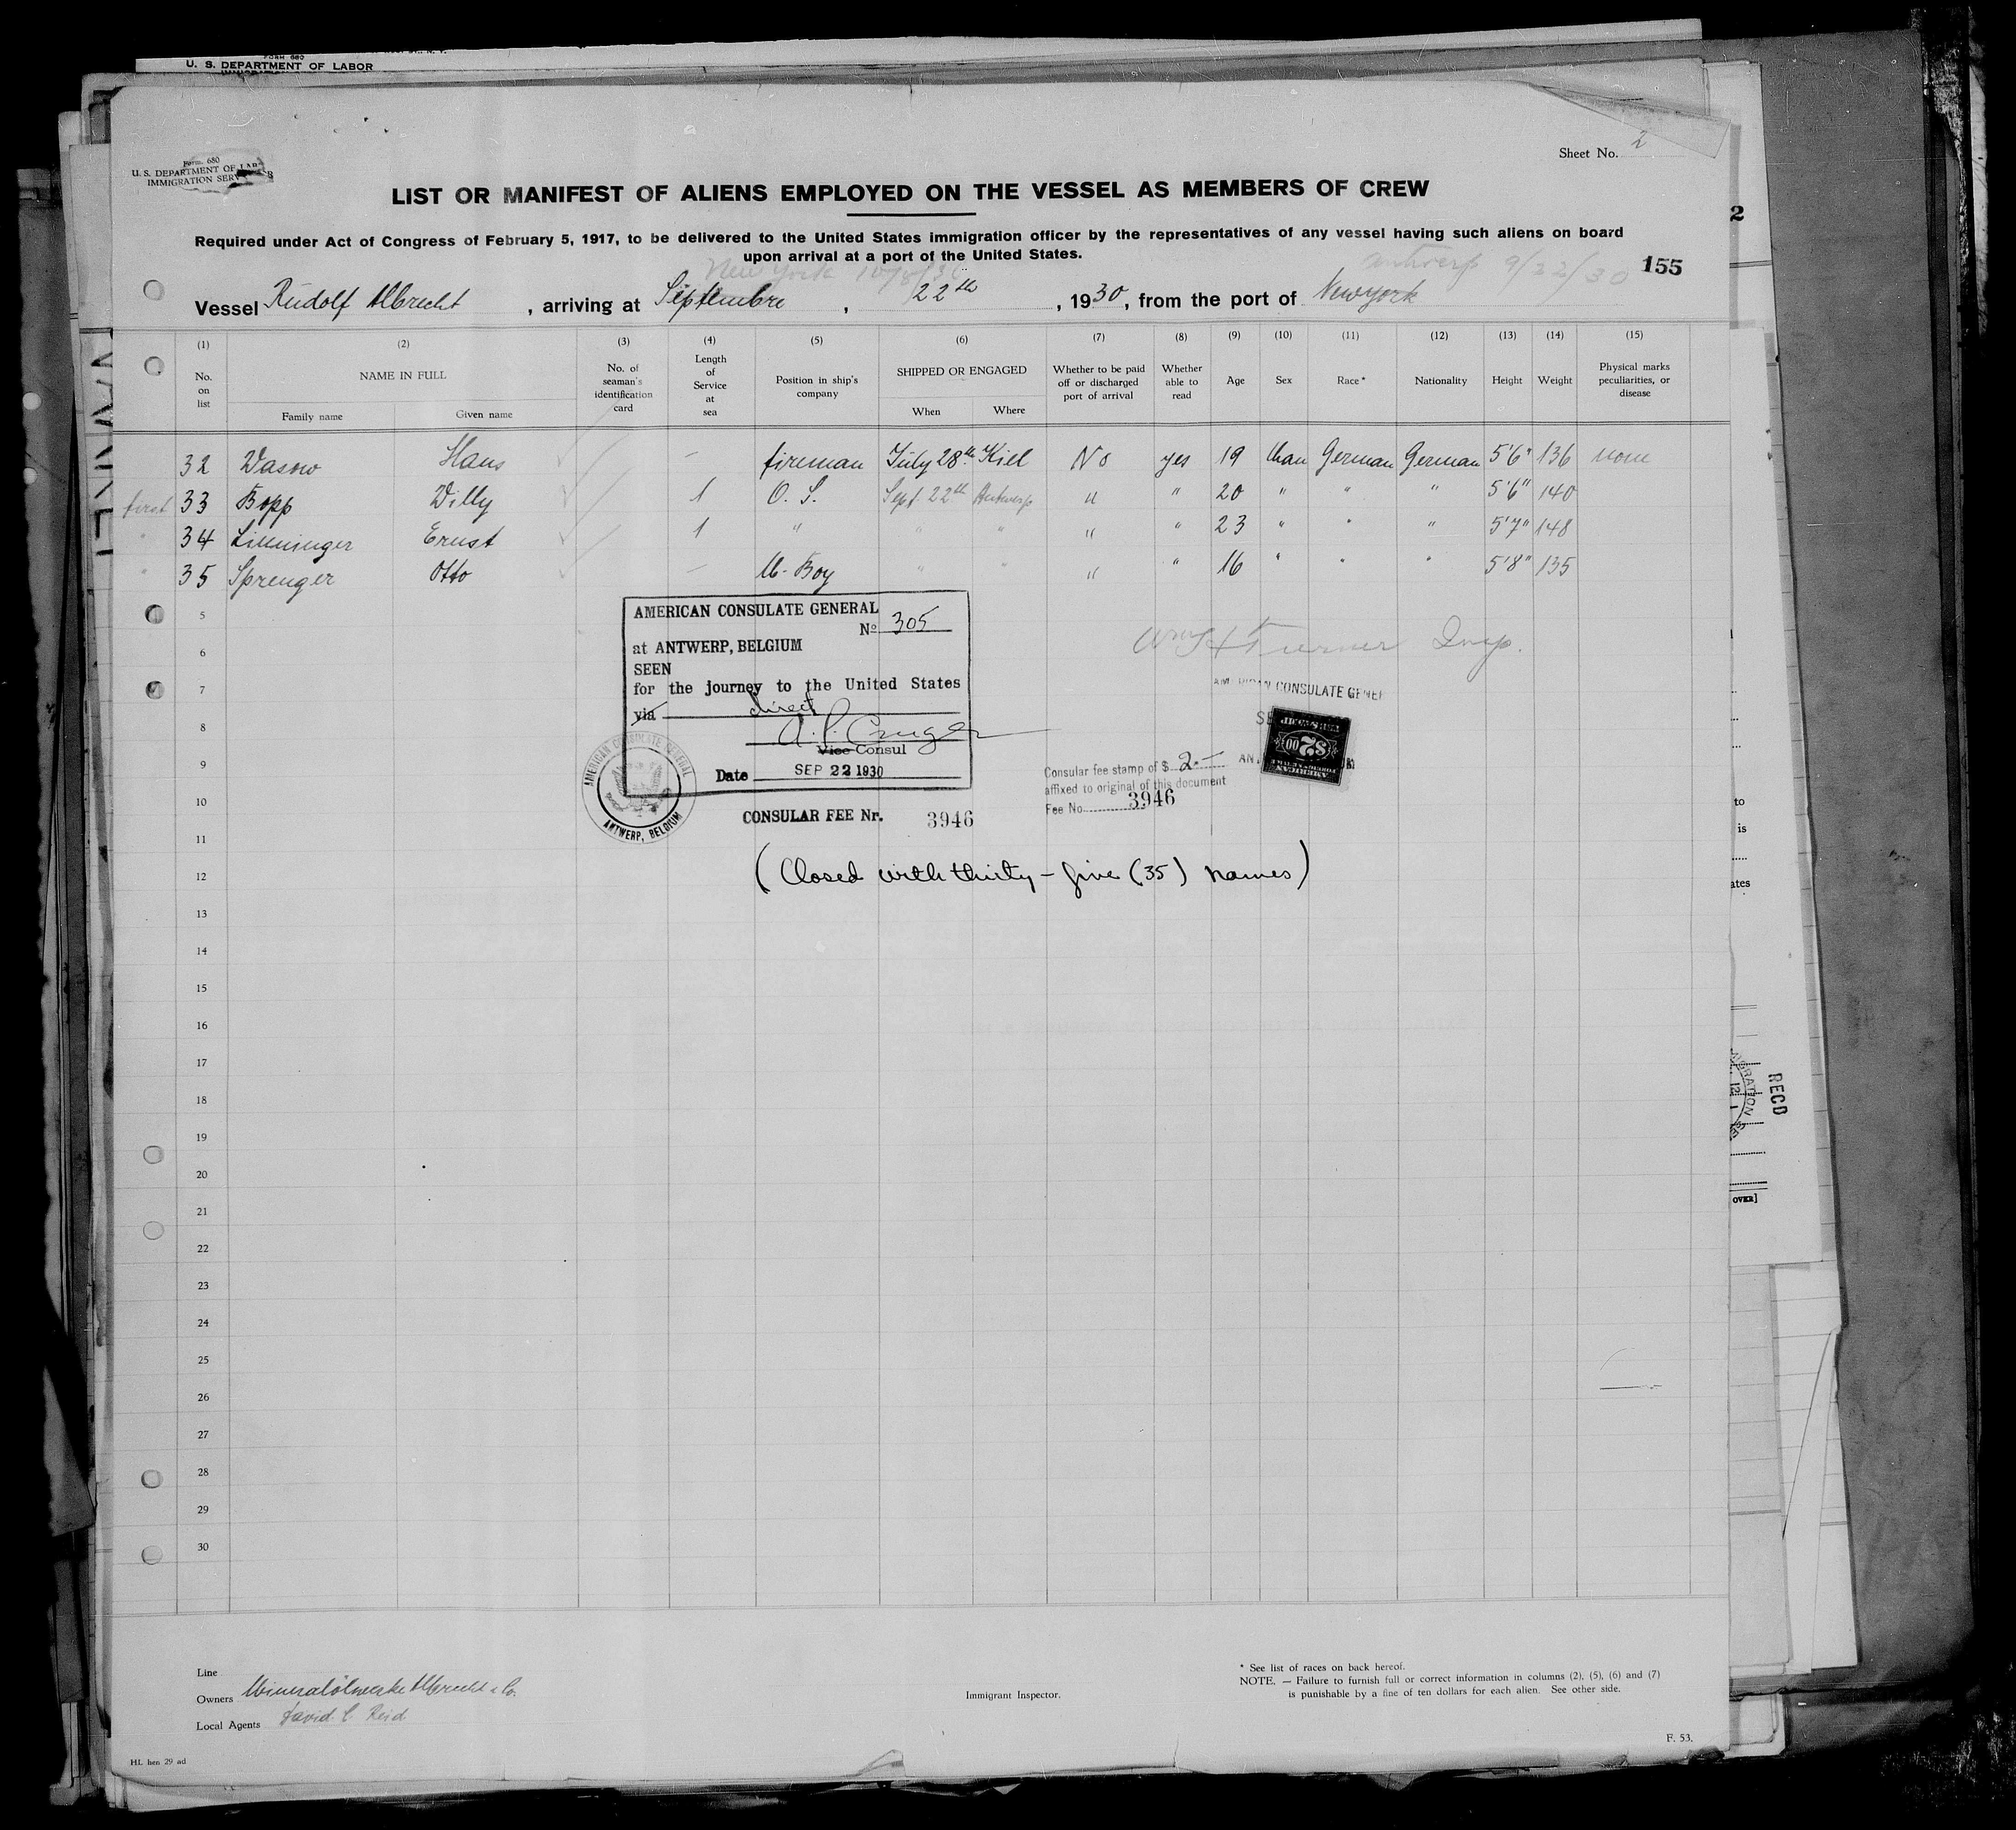 U. S. DEPARTMENT OF LABOR
Sheet No. 2
Form 680
U. S. DEPARTMENT OF LABOR
IMMIGRATION SERVICE
LIST OR MANIFEST OF ALIENS EMPLOYED ON THE VESSEL AS MEMBERS OF CREW
Required under Act of Congress of February 5, 1917, to be delivered to the United States immigration officer by the representatives of any vessel having such aliens on board
upon arrival at a port of the United States.
New York 10/8/30 Antwerp 9/22/30 155
Vessel Rudolf Albrecht, arriving at Septembre, 22th, 1930, from the port of Newyork
(1) (2) (3) (4) (5) (6) (7) (8) (9) (10) (11) (12) (13) (14) (15)
No. on list NAME IN FULL Family name Given name No. of seaman's identification card Length of Service at sea Position in ship's company SHIPPED OR ENGAGED When Where Whether to be paid off or discharged port of arrival Whether able to read Age Sex Race* Nationality Height Weight Physical marks peculiarities, or disease
32 Wasow Hans – fireman July 28th Kiel No yes 19 man German German 5'6" 136 none
first 33 Bopp Willy 1 O. S. Sept. 22th Antwerp " " 20 " " " 5'6" 140
" 34 Linninger Ernst 1 " " " " " 23 " " " 5'7" 148
" 35 Sprenger Otto – M. Boy " " " " 16 " " " 5'8" 135
5
6
7
8
9
10
11
12
13
14
15
16
17
18
19
20
21
22
23
24
25
26
27
28
29
30
AMERICAN CONSULATE GENERAL
No 305
at ANTWERP, BELGIUM
SEEN
for the journey to the United States
via direct
Vice Consul
Date SEP 22 1930
AMERICAN CONSULATE GENERAL
ANTWERP, BELGIUM
CONSULAR FEE Nr. 3946
Turner Insp.
AMERICAN CONSULATE GENER
$2.00
Consular fee stamp of $ 2.–
affixed to original of this document
Fee No. 3946
(Closed with thirty-five (35) names)
Line
Owners Mineralölwerke Albrecht & Co.
Local Agents David. C. Reid
Immigrant Inspector.
* See list of races on back hereof.
NOTE. — Failure to furnish full or correct information in columns (2), (5), (6) and (7)
is punishable by a fine of ten dollars for each alien. See other side.
HL hen 29 ad
F. 53.
2
to
is
ates
RECD
OVER]